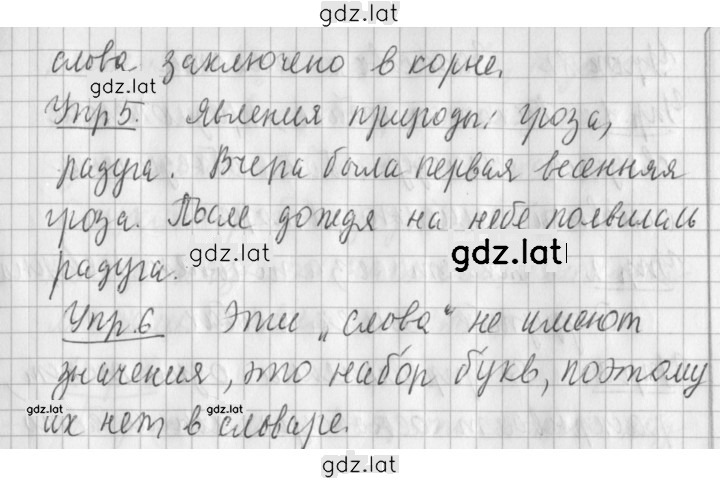 gdz.lat
слова заключено в корне.
gdz.lat
Упр 5. Явления природы: гроза,
радуга. Вчера была первая весенняя
гроза. После дождя на небе появилась
gdz.lat gdz.lat
радуга.
Упр. 6 Эти „слова“ не имеют
значения, это набор букв, поэтому
gdz.lat gdz.lat
их нет в словаре.
gdz.lat